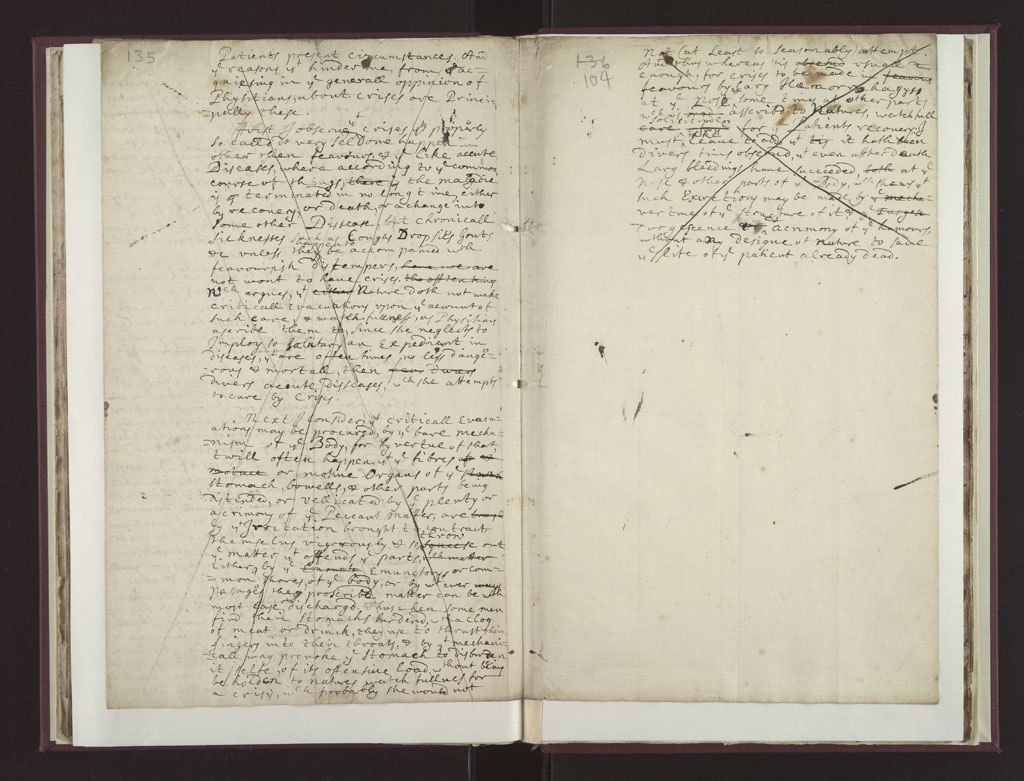 135
Patients present circumstances. And
yͤ reasons yᵗ hinder me from ac-
-quiescing in yͤ generall oppinion of
Physitians, about Crises are Princi-
-pally these.
First I observe yᵗ crises properly
so call'd do very seldome happen in
other then feavours, & yͤ like accute
Diseases, where according to yͤ common
course of things, there is yͤ maladie
is terminated in no long time, either
by recovery, or death, or a change into
some other Disease but chronicall
sicknesses such as Coughs Dropsies Gouts
&c unless they happen to be accompanied wᵗʰ
feavourish distempers, have we are
not wont to have crises.
wᶜʰ argues, yᵗ either Nature doth not make
criticall evacuations upon yͤ account of
such care, & watchfullness, as Physitians
ascribe them to, since she neglects to
Imploy so salutary an Expedient in
diseases, yᵗ are often times no less dange-
-rous & mortall, then
divers accute disseases, wᶜʰ she attempts
to cure by Crises.
Next I consider yᵗ criticall Evacu-
ations may be procured, by yͤ bare mecha-
-nism of yͤ Body, for by vertue of that
twill often happen, yᵗ yͤ fibres
or motive Organs of yͤ
stomach, bowells, & other parts being
distended, or vellicated by yͤ plenty or
acrimony of yͤ Peccant matter, are
by yᵗ Irritation brought to contract
themselves vigorously & to throw out
yͤ matter yᵗ offends yͤ parts,
Either by yͤ Emunctorys or com-
-mon shores, of yͤ body, or by wᵗ ever
passages the proscribed matter can be wᵗʰ
most ease discharged. Thus when some men
find their stomachs burdend, wᵗʰ a clog
of meat or drinck, they use to thrust their
fingers into their throats, & by yᵗ mechani-
-call way provoke yͤ stomach to disburden
it selfe, of its offensive load, without being
beholden to Natures watchfullness for
a crisis, wᶜʰ probably she would not
136
104
Not (at least so seasonably) attempt.
And thus whereas tis usuall
enough, for crises to be made in
feavours by Hemorrhages
at yͤ Nose, & some times at other parts
ascribd to Natures, watchfull
care solicitude for yͤ Patients recovery,
I must take leave to add yᵗ tis it hath been
divers times observed, yᵗ even after death
Larg bleedings have succeeded both at yͤ
Nose & other parts of yͤ Body, wᶜʰ shews yᵗ
such Excretions may be made, by
vertue of yͤ structure of it, yͤ
Turgescence & acrimony of yͤ humours,
without any designe of Nature to save
yͤ life of yͤ patient already dead.